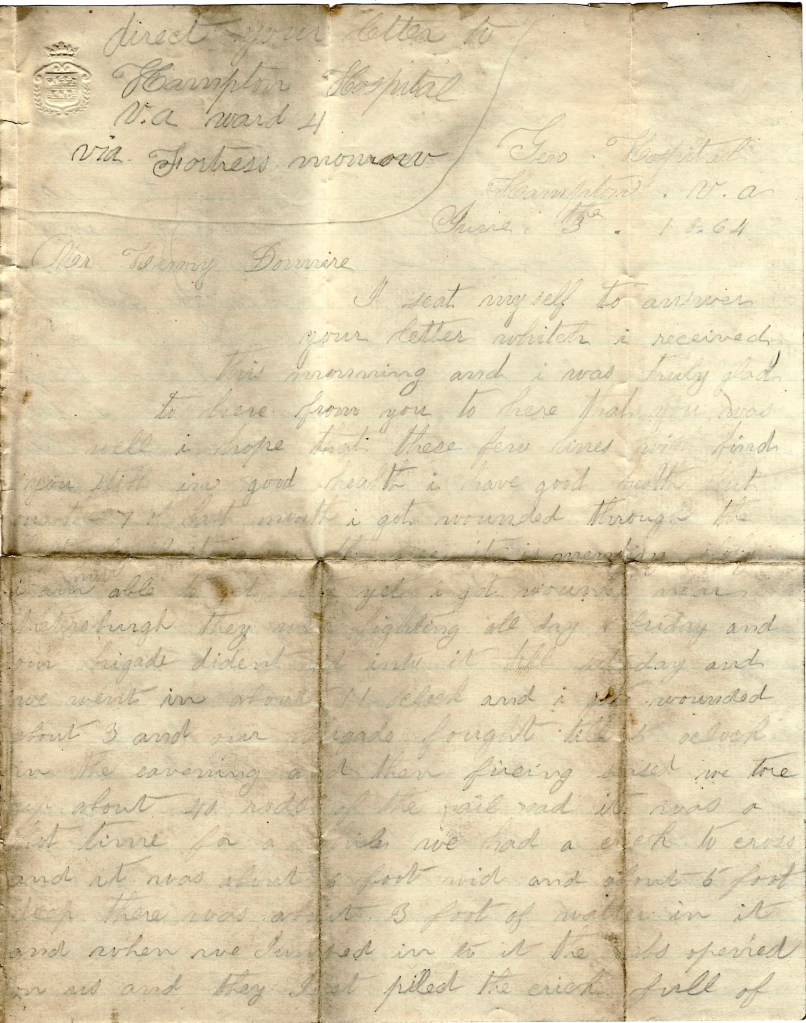 direct your letter to
Hampton Hospital
V.a ward 4
via Fortress monrow
Geo. Hospital
Hampton. V. a
June. the 3. 1864
Mr Henry
I seat myself to answer
your letter whitch i received
this mourning and i was truly glad
to here from you to here that you was
well i hope that these few lines will find
you still in good health i have good health but
7 of last month i got wounded through the
it is mending
i am able to yet i got wounded near
Petersburgh they was fighting all day friday and
our brigade dident get into it till saturday and
we went in about 11 oclock and i got wounded
about 3 and our fought till 5 oclock
in the eavening and then fireing seased we tore
up about 40 rods of the rail road it was a
hot time for a while we had a crick to cross
and it was about 6 foot wid and about 5 foot
deep there was about 3 foot of watter in it
and when we Jumped in to it the rebs opened
on us and they Just piled the crick full of